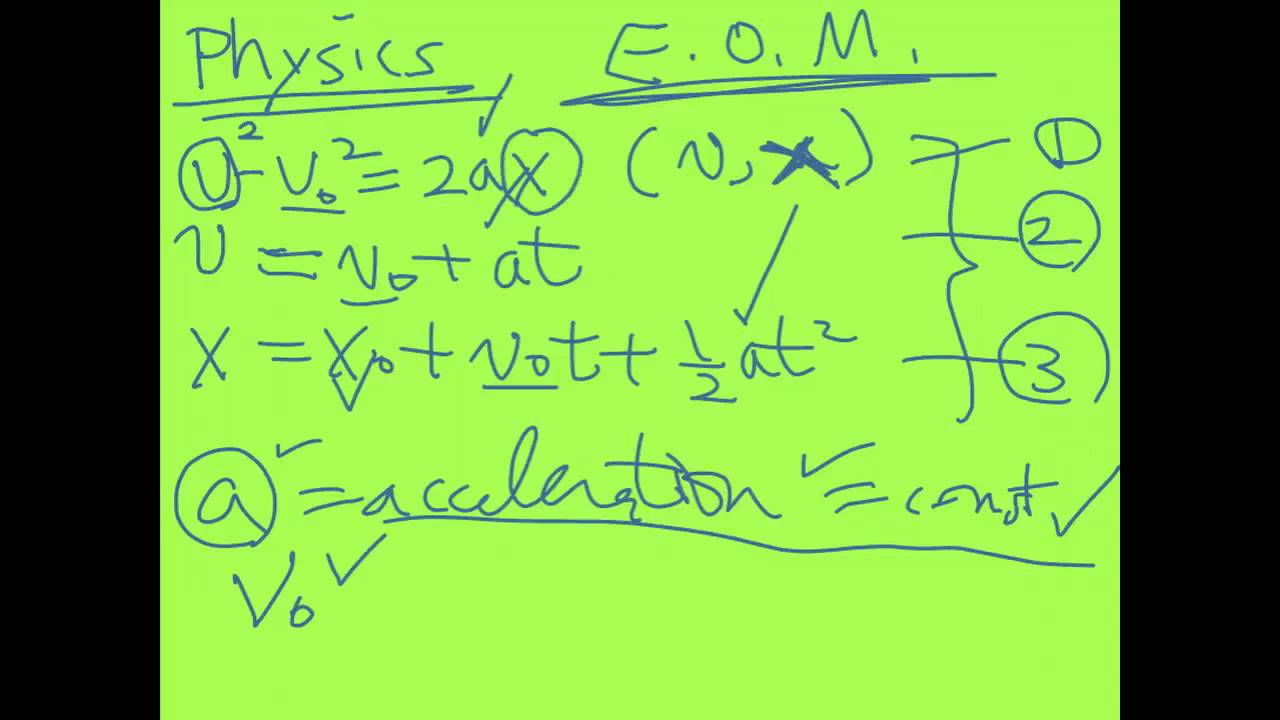 Physics E.O.M.
v² - v₀² = 2ax (v, x) ①
v = v₀ + at ②
x = x₀ + v₀t + 1/2 at² ③
a = acceleration = const
v₀